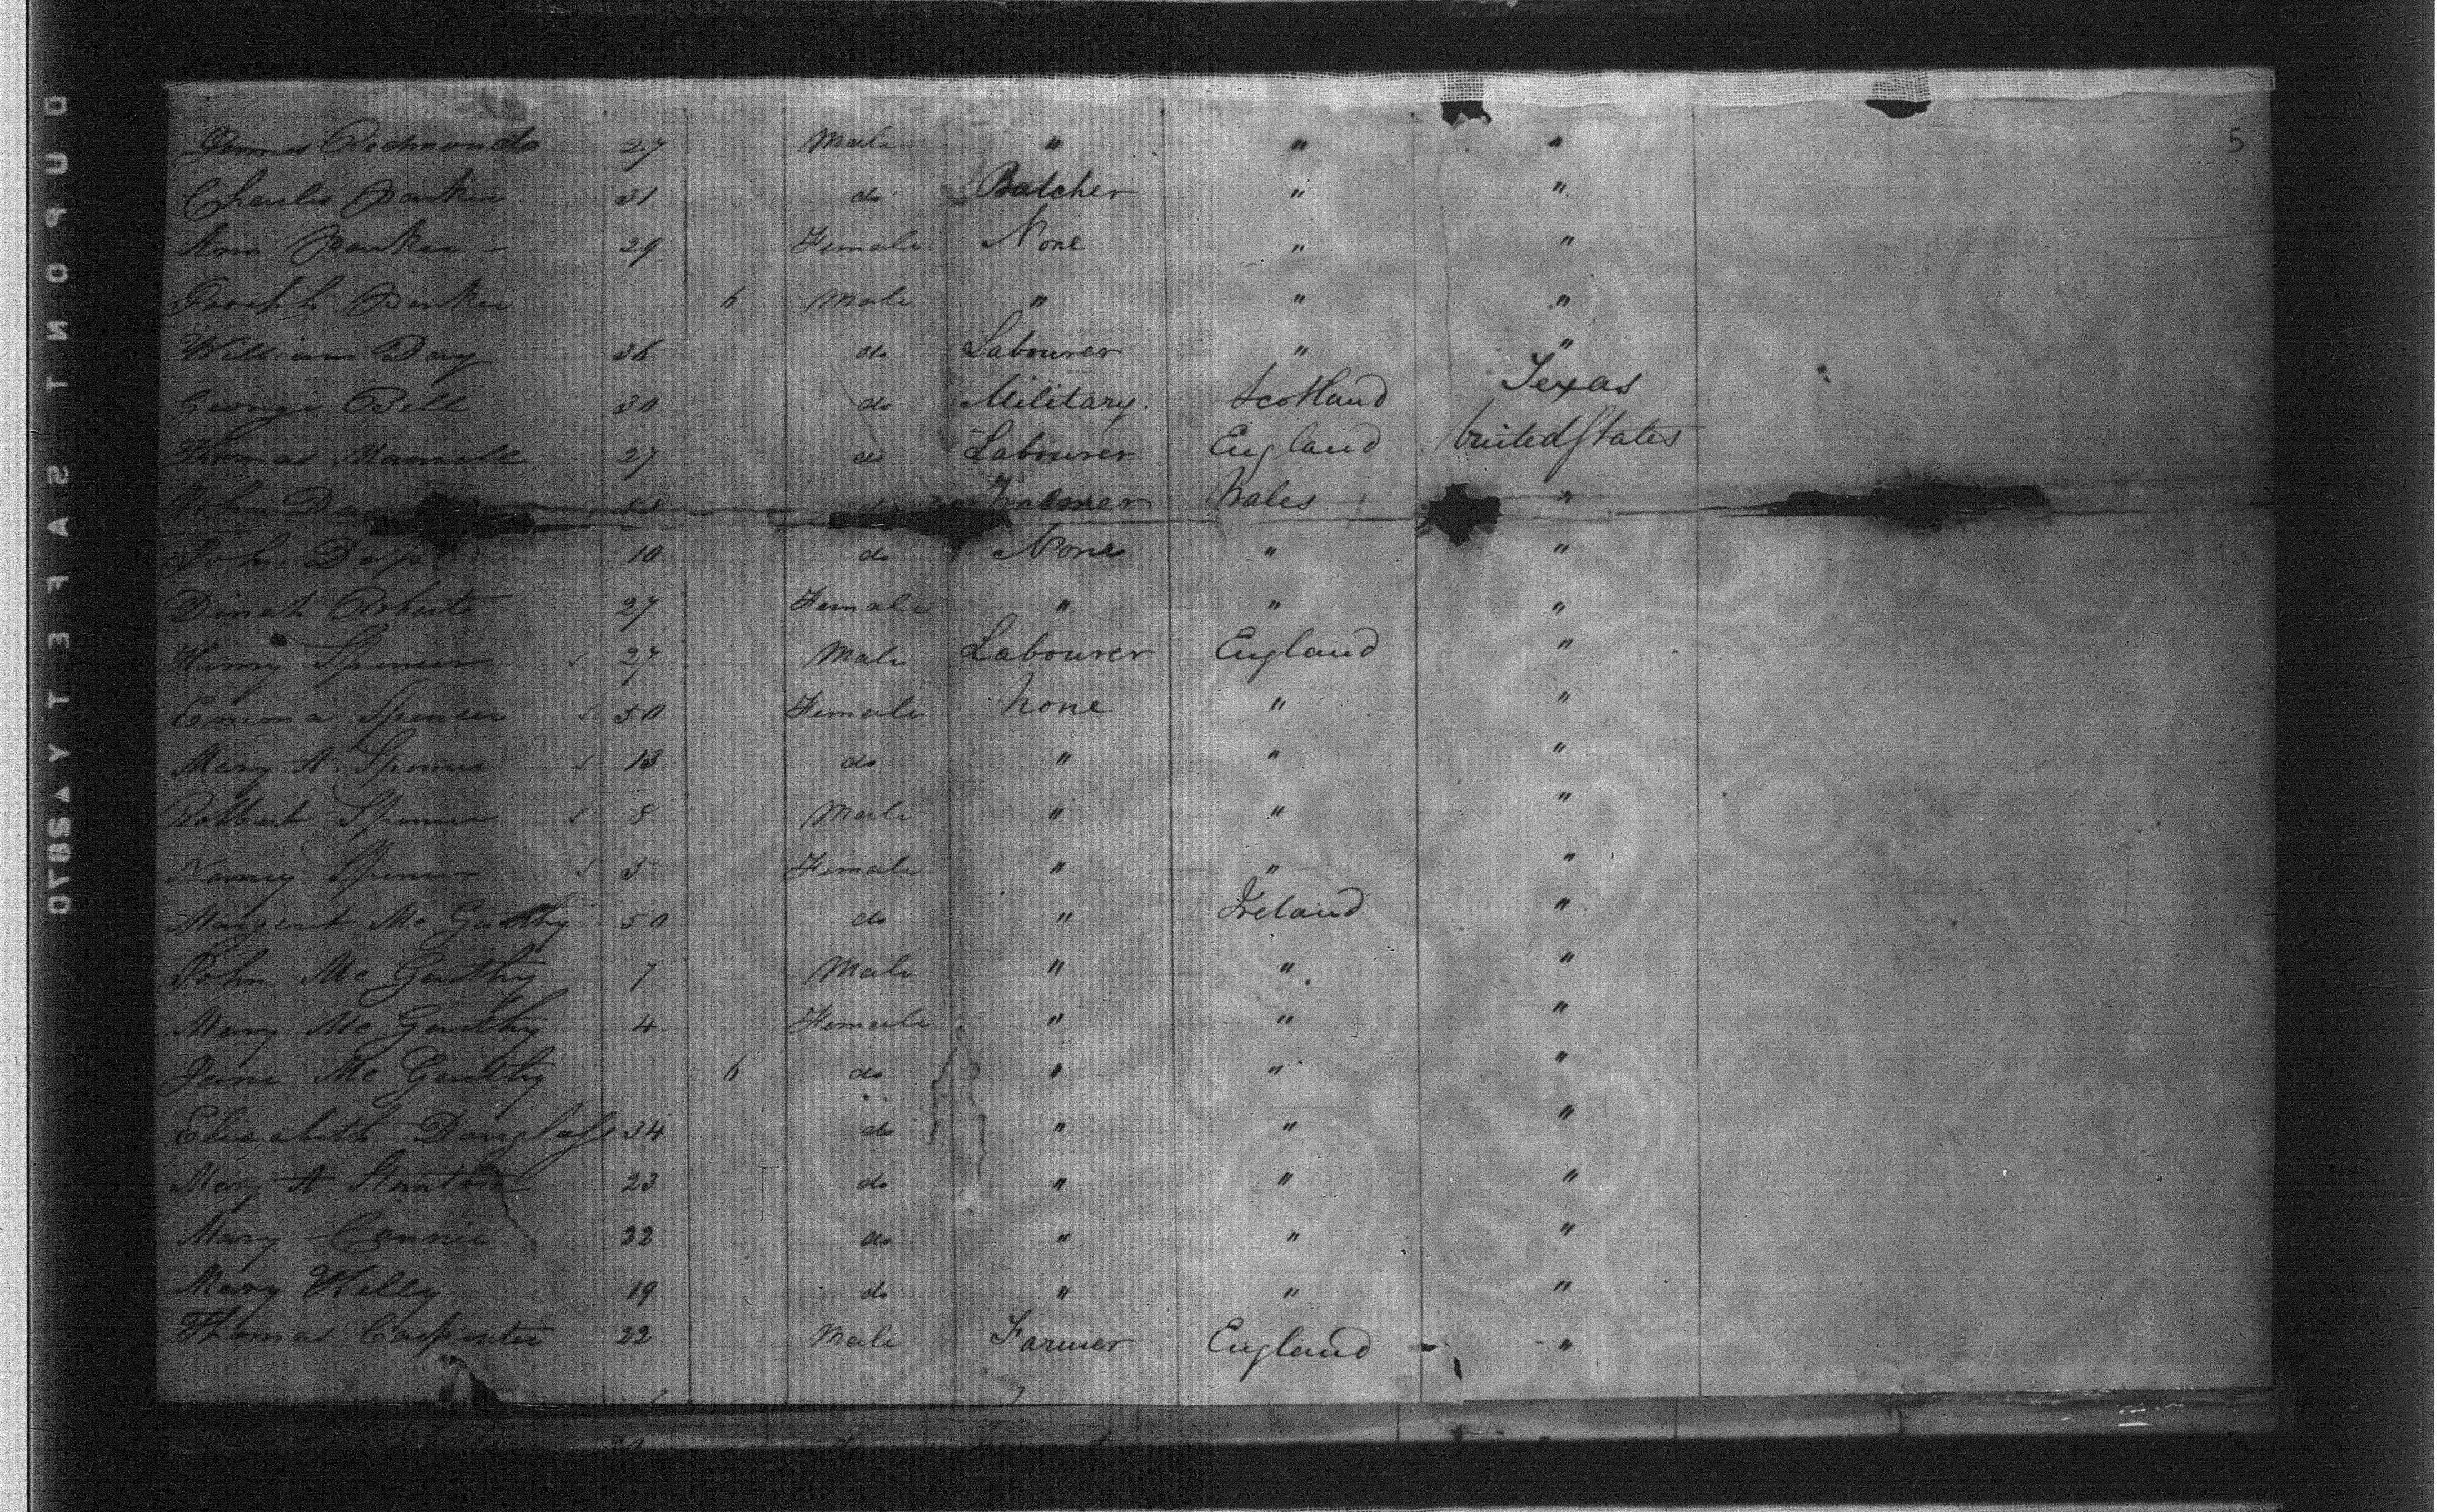 5
James Redmonds 27 Male " " "
Charles Parker 31 do Butcher " "
Ann Parker - 29 Female None " "
Joseph Parker 6 Male " " "
William Day 36 do Labourer " "
George Bell 30 do Military. Scotland Texas
Thomas Maunsell 27 do Labourer England United States
John do Wales "
John 10 do None " "
Dinah Roberts 27 Female " " "
Henry Spencer 27 Male Labourer England "
Emma Spencer 50 Female None " "
Mary A. Spencer 13 do " " "
Robbert Spencer 8 Male " " "
Nancy Spencer 5 Female " " "
Margeret Mc Garthy 50 do " Ireland "
John Mc Garthy 7 Male " " "
Mary Mc Garthy 4 Female " " "
Jane Mc Garthy 6 do " " "
Elizabeth Douglass 34 do " " "
Mary A Stanton 23 do " " "
Mary Connie 22 do " " "
Mary Kelly 19 do " " "
Thomas Carpenter 22 Male Farmer England "
DUPONT SAFETY